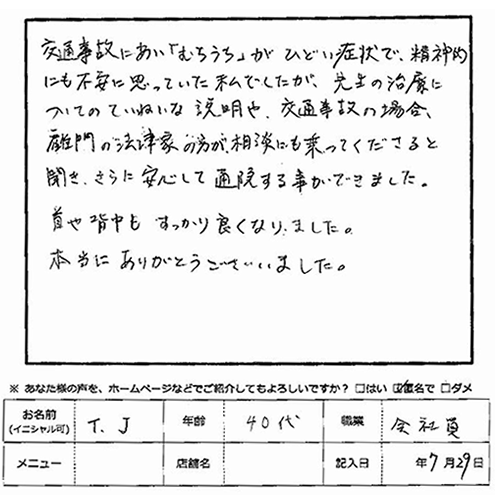 交通事故にあい「むちうち」がひどい症状で、精神的
にも不安に思っていた私でしたが、先生の治療に
ついてのていねいな説明や、交通事故の場合、
専門の法律家の方が、相談にも乗ってくださると
聞き、さらに安心して通院する事ができました。
首や背中もすっかり良くなりました。
本当にありがとうございました。
※ あなた様の声を、ホームページなどでご紹介してもよろしいですか？ □はい ☑匿名で □ダメ
お名前 (イニシャル可) T. J 年齢 40代 職業 会社員
メニュー 店舗名 記入日 年7月29日